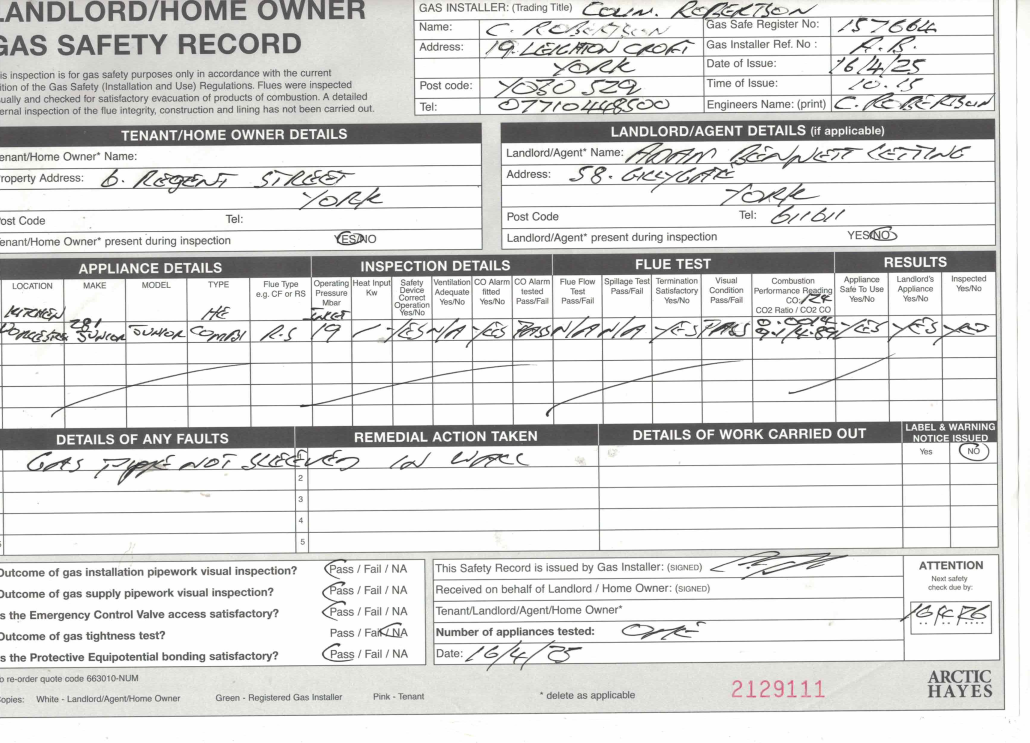 LANDLORD/HOME OWNER
GAS SAFETY RECORD
is inspection is for gas safety purposes only in accordance with the current
ition of the Gas Safety (Installation and Use) Regulations. Flues were inspected
sually and checked for satisfactory evacuation of products of combustion. A detailed
ernal inspection of the flue integrity, construction and lining has not been carried out.
GAS INSTALLER: (Trading Title) COLIN. ROBERTSON
Name: C. ROBERTSON Gas Safe Register No: 157664
Address: 19. LEIGHTON CROFT Gas Installer Ref. No :
YORK Date of Issue: 16/4/25
Post code: YO30 5Z9 Time of Issue: 10.15
Tel: 07710448500 Engineers Name: (print) C. ROBERTSON
TENANT/HOME OWNER DETAILS
enant/Home Owner* Name:
roperty Address: 6. REGENT STREET
YORK
ost Code Tel:
enant/Home Owner* present during inspection YES/NO
LANDLORD/AGENT DETAILS (if applicable)
Landlord/Agent* Name: ADAM BENNETT LETTING
Address: 58. GILLYGATE
YORK
Post Code Tel: 611611
Landlord/Agent* present during inspection YES/NO
APPLIANCE DETAILS INSPECTION DETAILS FLUE TEST RESULTS
LOCATION MAKE MODEL TYPE Flue Type e.g. CF or RS Operating Pressure Mbar Heat Input Kw Safety Device Correct Operation Yes/No Ventilation Adequate Yes/No CO Alarm fitted Yes/No CO Alarm tested Pass/Fail Flue Flow Test Pass/Fail Spillage Test Pass/Fail Termination Satisfactory Yes/No Visual Condition Pass/Fail Combustion Performance Reading CO: CO2 Ratio / CO2 CO Appliance Safe To Use Yes/No Landlord's Appliance Yes/No Inspected Yes/No
KITCHEN HE INLET
WORCESTER 28I JUNIOR JUNIOR COMBI R.S 19 / YES N/A YES PASS N/A N/A YES PASS YES YES YES
DETAILS OF ANY FAULTS REMEDIAL ACTION TAKEN DETAILS OF WORK CARRIED OUT LABEL & WARNING NOTICE ISSUED
Yes NO
GAS PIPE NOT SLEEVED IN WALL
1
2
3
4
5
Outcome of gas installation pipework visual inspection? Pass / Fail / NA
Outcome of gas supply pipework visual inspection? Pass / Fail / NA
s the Emergency Control Valve access satisfactory? Pass / Fail / NA
Outcome of gas tightness test? Pass / Fail / NA
s the Protective Equipotential bonding satisfactory? Pass / Fail / NA
This Safety Record is issued by Gas Installer: (SIGNED)
Received on behalf of Landlord / Home Owner: (SIGNED)
Tenant/Landlord/Agent/Home Owner*
Number of appliances tested: ONE
Date: 16/4/25
ATTENTION
Next safety
check due by:
16/4/26
o re-order quote code 663010-NUM
opies: White - Landlord/Agent/Home Owner Green - Registered Gas Installer Pink - Tenant * delete as applicable 2129111
ARCTIC
HAYES